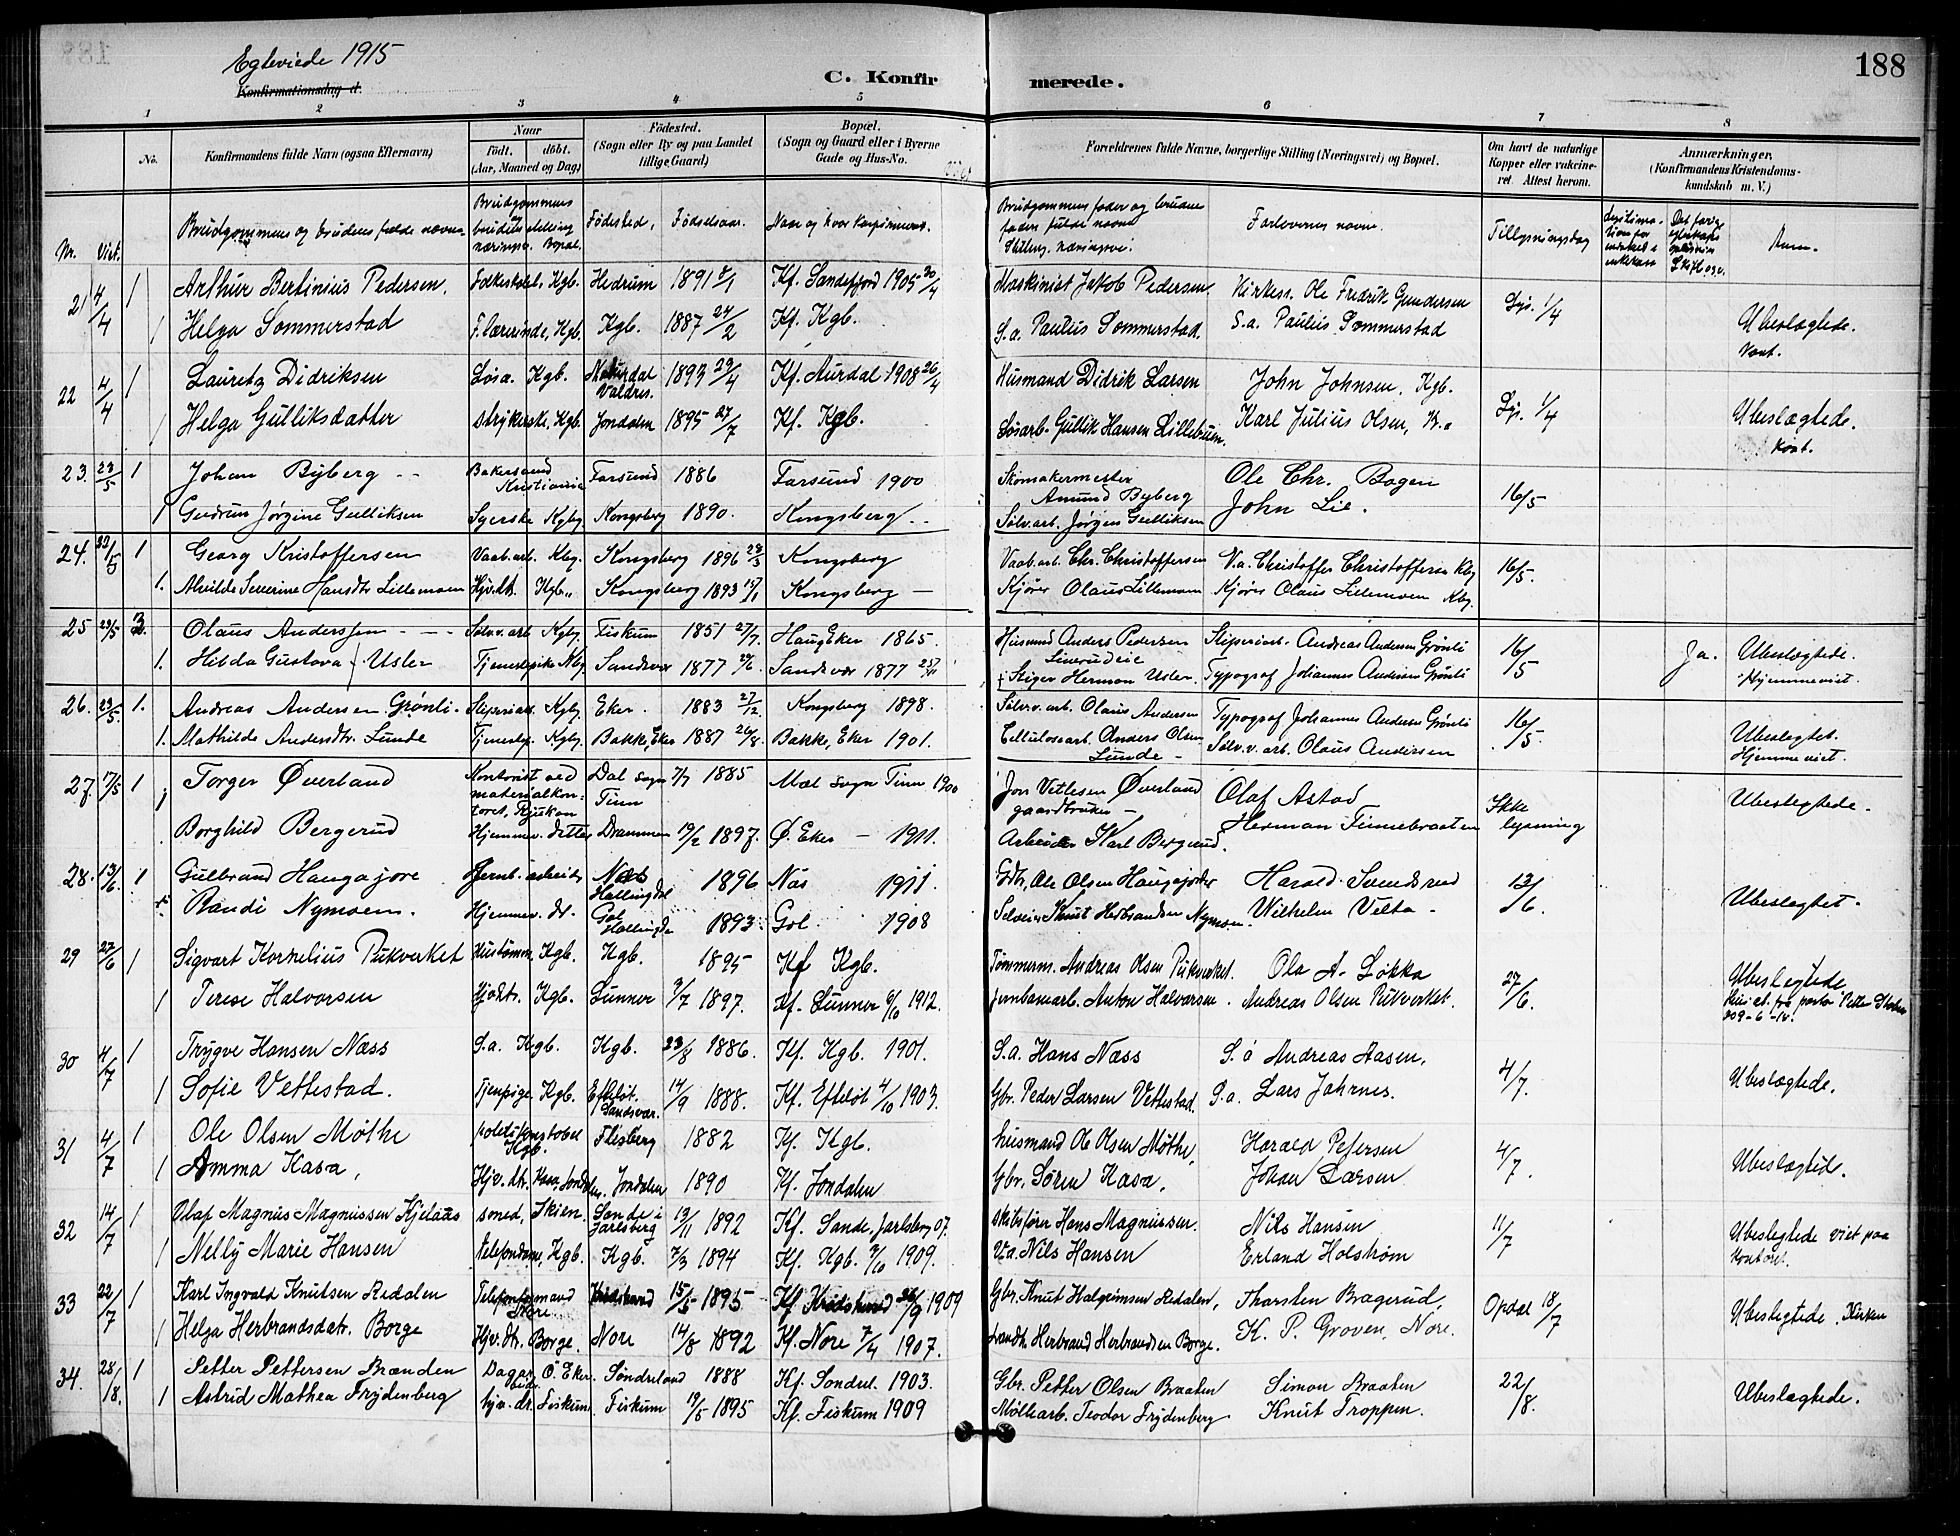 188
Egteviede 1915
Konfirmationsdag d.
C. Konfirmerede.
1 2 3 4 5 6 7 8
No.
Konfirmandens fulde Navn (ogsaa Efternavn)
Naar
født. døbt.
(Aar, Maaned og Dag)
Fødested.
(Sogn eller By og paa Landet
tillige Gaard)
Bopæl.
(Sogn og Gaard eller i Byerne
Gade og Hus-No.
Forældrenes fulde Navne, borgerlige Stilling (Næringsvei) og Bopæl.
Om havt de naturlige
Kopper eller vakcine-
ret. Attest herom.
Anmærkninger.
(Konfirmandens Kristendoms-
kundskab m. V.)
Nr. Viet. Brudgommens og brudens fulde navne
Brudgommens og brudens stilling næringsv. Bopæl.
Fødested, Fødselsaar.
Naar og hvor konfirmeret.
Brudgommens fader og brudens faders fulde navne Stilling, næringsvei.
Forlovernes navne.
Tillysningsdag
Anm.
21 4/4 1 Arthur Bertinius Pedersen. Folkeskol. Kgb. Hedrum 1891 Kf. Sandefjord 1905 30/4 Maskinist Jakob Pedersen. Kirkes. Ole Fredrik Gundersen Lys. 1/4
1 Helga Sommerstad F. lærerinde, Kgb. Kgb. 1887 24/2 Kf. Kgb. S.a. Paulus Sommerstad. S.a. Paulus Sommerstad Ubeslægtede.
22 4/4 1 Lauretz Didriksen Løsa. Kgb. Valdres. 1893 29/4 Kf. Aurdal 1908 26/4 Husmand Didrik Larsen John Johnsen, Kgb. Lys. 1/4
1 Helga Gulliksdatter Strykerske, Kgb. Jondalen 1895 27/7 Kf. Kgb. Løsarb. Gullik Hansen Lillebuen. Karl Julius Olsen, Ubeslægtede.
23. 23/5 1 Johan Byberg Bakersvend Kristiania Farsund 1886 Farsund 1900 Skomakermester Amund Byberg Ole Chr. Bogen 16/5
1 Gudrun Jørgine Gulliksen Syerske Kgbg. Kongsberg 1890. Kongsberg Sølv.arb. Jørgen Gulliksen John Lie.
24. 1 Georg Kristoffersen Vaab.arb. Kbg. Kongsberg 1896 Kongsberg Vaab.arb. Chr. Christoffersen V.a. Christoffer Christoffersen Kbg 16/5.
1. Alvilde Severine Hansdtr Lillemoen Hjv.dtr. Kgb. Kongsberg 1893 15/1 Kongsberg Kjører Olaus Lillemoen Kjører Olaus Lillemoen Kbg.
25 23/5 Olaus Anderssen Sølv.v.arb Kgbg. Fiskum 1851 27/7 Haug Eker 1865. Husmd Anders Pedersen Slipesiarb. Andreas Andersen Grønli 16/5 Ja. Ubeslægtede.
1. Hilda Gustava Usler Tjenestepike Kbg Sandsvær 1877 Sandsvær 1877 Stiger Herman Usler Typograf Johannes Andersen Grønli Hjemmeviet.
26. 23/5. 1. Andreas Andersen Grønli Kgbg. Eker. 1883 27/12 Kongsberg 1898. Sølv.v.arb. Olaus Andersen Typograf Johannes Andersen Grønli 16/5
1. Mathilde Andersdtr. Lunde Tjenestep. Kgbg. Bakke, Eker 1887 26/8. Bakke, Eker 1901. Cellulosearb. Anders Olsen Lunde Sølv.v.arb. Olaus Andersen Ubeslegtet. Hjemmeviet.
27. 17/5 1 Torger Øverland Kontorist ved materialkontoret, Rjukan Dal sogn Tinn 7/7 1885 Mæl sogn Tinn 1900 Jon Vetlesen Øverland gaardbruker Olaf Astad Ikke lysning Ubeslegtede.
Borghild Bergerud Hjemmev. datter Drammen 19/2 1897. Ø. Eker 1911. Arbeider Karl Bergerud. Herman Finnebraaten
28. 13/6. 1 Gulbrand Haugajore Jernb. arbeider Næs Hallingdal 1896 Nás 1911. Gdbr. Ole Olsen Haugajordet Harald Svendsrud 13/6.
Randi Nymoen. Hjemmev. dt. Gol Hallingda 1893. Gol. 1908 Selveier Knut Herbrandsen Nymoen. Wilhelm Velta Ubeslegtet.
29 27/6 1 Sigvart Kornelius Pukverket Hustømmer Kgb. Kgb. 1895 Kf Kgb. Tømmerm. Andreas Olsen Pukverket. Ole A. Løkka 27/6. Ubeslegtede
1 Terese Halvorsen Hjv.dtr. Kgb. Lunner 9/7 1897. Kf. Lunner 6/10 1912. Jernbanearb. Anton Halvorsen. Andreas Olsen Pukverket.
30 4/7 1 Trygve Hansen Næss S.a. Kgb. Kgb. 23/8 1886. Kf. Kgb. 1901. S.a. Hans Næss S.a Andreas Aasen, 4/7.
1 Sofie Vettestad. Tjenpige Kgb. Efteløt. Sandsvær. 14/9 1888. Kf. Efteløt 4/10 1903. Gbr. Peder Larsen Vettestad. S.a. Lars Jahrnes. Ubeslægtede.
31 4/7 1 Ole Olsen Møthe politikonstabel Kgb. Flesberg 1882 Kf. Kgb. husmand Ole Olsen Møthe, Harald Petersen 4/7.
1 Amma Kasa, Hjv.dtr. Kasa, Jondalen. Jondalen 1890 Kf. Jondalen Gbr. Søren Kasa, Johan Larsen Ubeslægtid.
32 14/7 1 Olaf Magnus Magnussen Kjelaas smed, Skien. Sande i Jarlsberg 13/11 1892 Kf. Sande, Jarlsberg 07. Skibsfører Hans Magnussen. Nils Hansen 11/7
1 Nelly Marie Hansen Telefondame, Kgb. Kgb. 7/3 1894 Kf. Kgb. 3/10 1909. V.a. Nils Hansen Erland Holstrøm Ubeslegtede viet paa kontoret.
33 22/7 1 Karl Ingvald Knutsen Redalen Telefonformand Nore Krødsherred 15/5 1895 Kf Krødsherred 26/9 1909 Gbr. Knut Halgrimsen Redalen, Thorsten Bragerud, Opdal 18/7
1 Helga Herbrandsdatr. Borge Hjv.dtr. Borge, Nore 14/8 1892 Kf. Nore 7/4 1907. Landh. Herbrand Herbrandsen Borge. K. P. Groven, Nore. Ubeslegtede. Kirken
34. 28/8. 1 Petter Pettersen Brænden Ø. Eker. Søndreland 1888 Kf. Søndrel. 1903. Gbr. Petter Olsen Braaten Simon Braaten 22/8.
1 Astrid Mathea Frydenberg hjv. dr. Fiskum. Fiskum 19/5 1895 Kf. Fiskum 1909 Møllearb. Teodor Frydenberg Knut Troppen. Ubeslægtede.